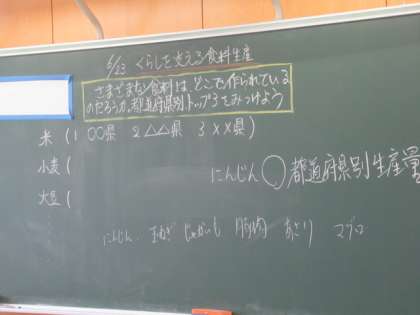 5/23 くらしを支える食料生産
さまざまな食料は、どこで作られている
のだろうか。都道府県別トップ3をみつけよう
米(1 〇〇県 2 △△県 3 ××県)
小麦(
にんじん〇都道府県別生産量
大豆(
にんじん 玉ねぎ じゃがいも 豚肉 あさり マグロ